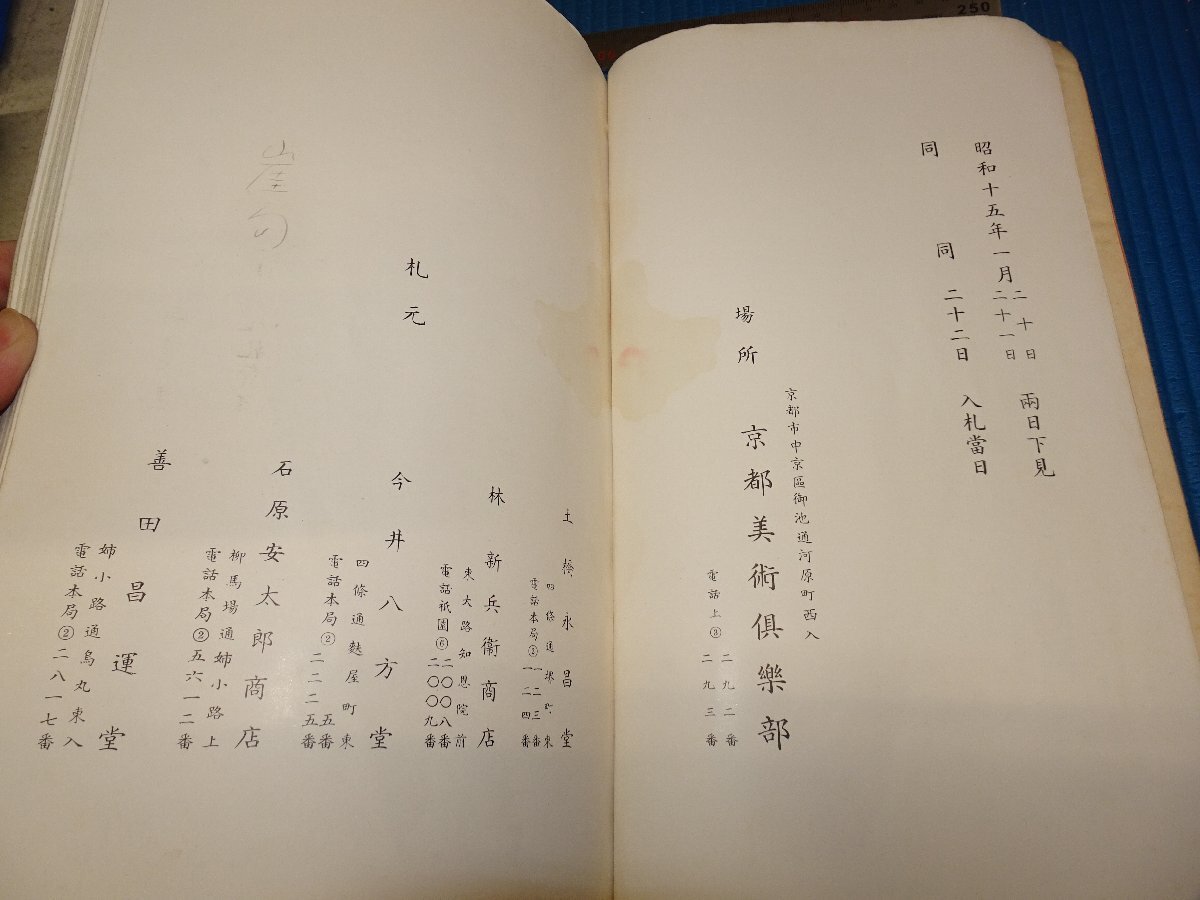 昭和十五年一月
二十日
二十一日
兩日下見
同
同
二十二日
入札當日
場所
京都市中京區御池通河原町西入
京都美術俱樂部
電話上③
二九二番
二九三番
札元
土橋永昌堂
四條通堺町東
電話本局②
一二三番
一二四番
林新兵衞商店
東大路知恩院前
電話祇園⑥
二〇〇八番
二〇〇九番
今井八方堂
四條通麩屋町東
電話本局②
二二五番
石原安太郎商店
柳馬場通姉小路上
電話本局②五六一二番
善田昌運堂
姉小路通烏丸東入
電話本局②二八一七番
250